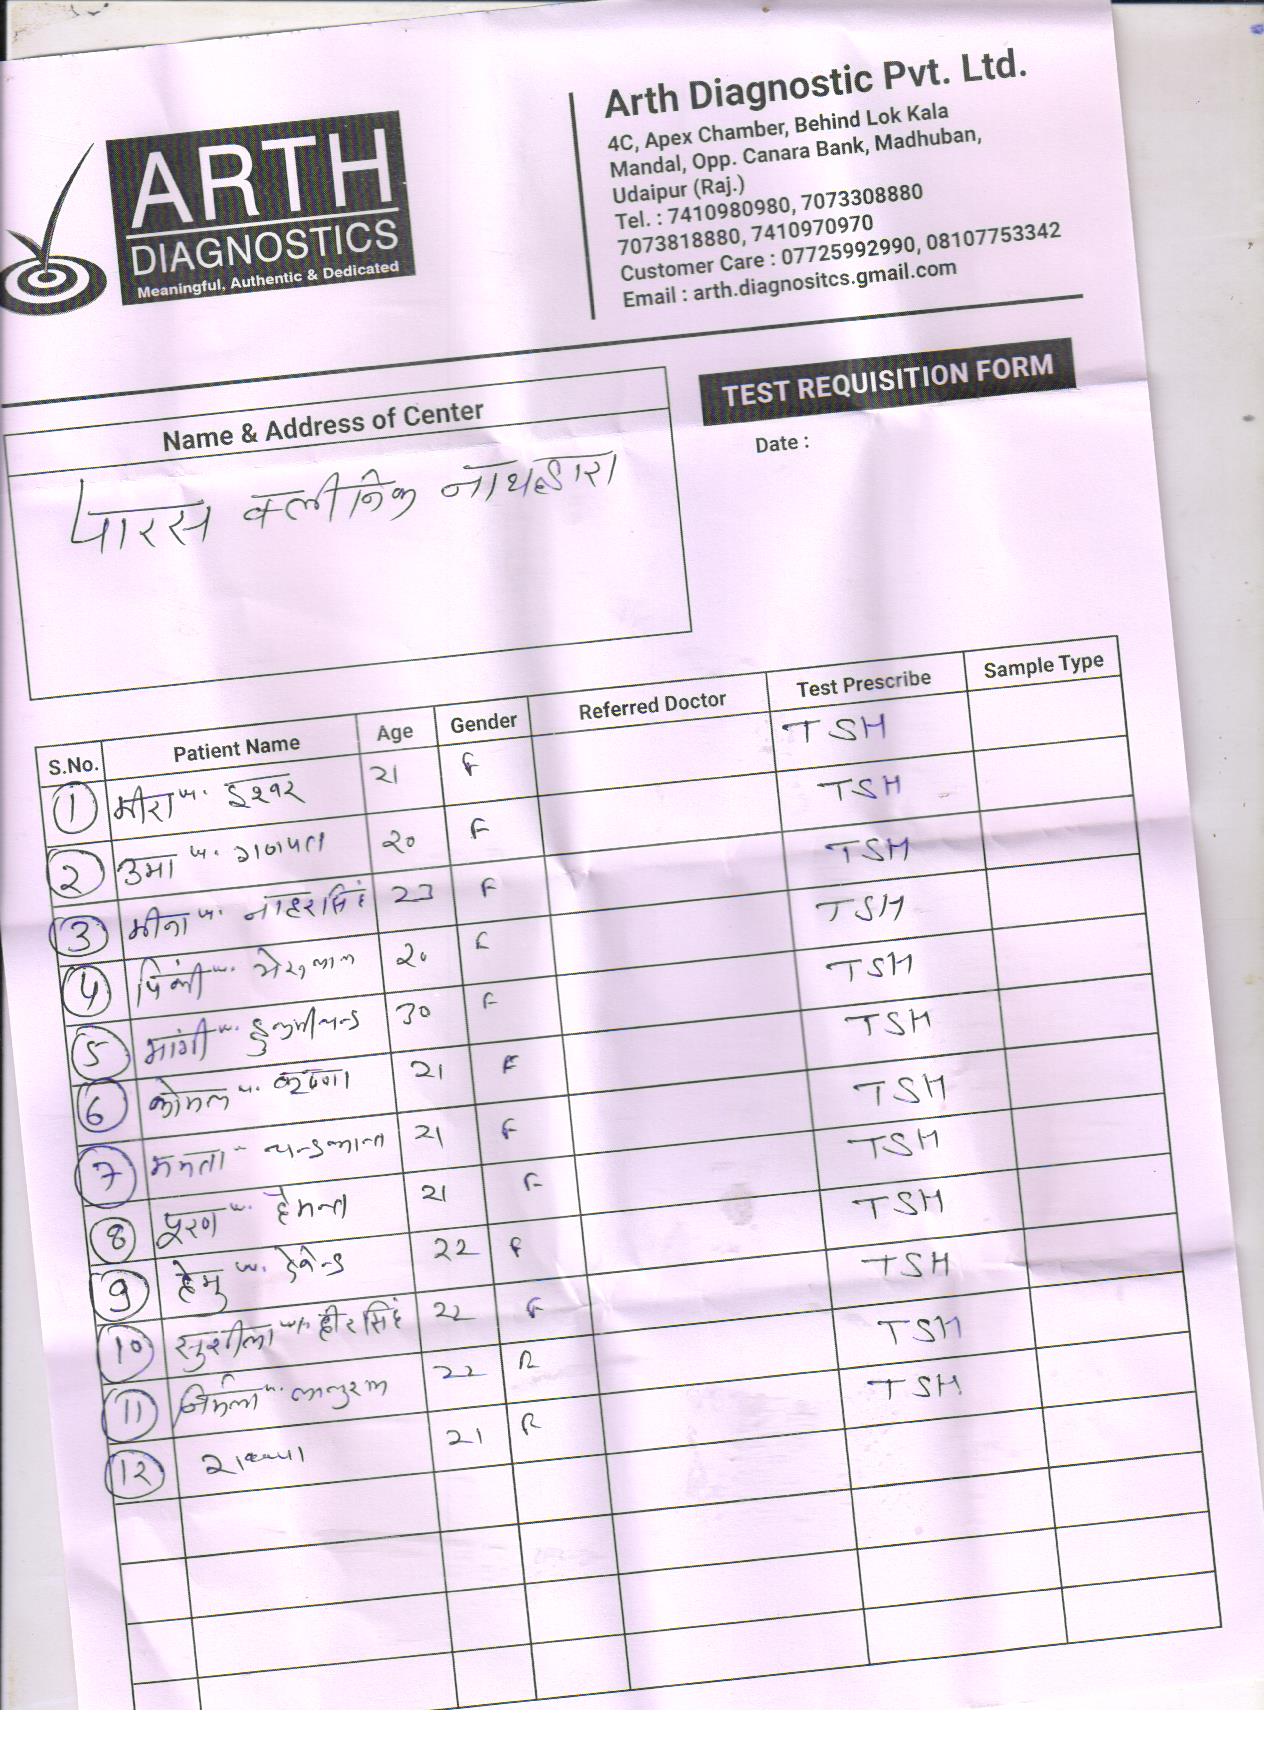 ARTH
DIAGNOSTICS
Meaningful, Authentic & Dedicated
Arth Diagnostic Pvt. Ltd.
4C, Apex Chamber, Behind Lok Kala
Mandal, Opp. Canara Bank, Madhuban,
Udaipur (Raj.)
Tel. : 7410980980, 7073308880
7073818880, 7410970970
Customer Care : 07725992990, 08107753342
Email : arth.diagnositcs.gmail.com
TEST REQUISITION FORM
Date :
Name & Address of Center
पारस क्लीनिक नाथद्वारा
S.No. Patient Name Age Gender Referred Doctor Test Prescribe Sample Type
1 मीरा w. ईश्वर 21 F TSH
2 उमा w. गणपत 20 F TSH
3 मीना w. नाहरसिंह 23 F TSH
4 पिंकी w. भेरूलाल 20 F TSH
5 मांगी w. 30 F TSH
6 कोमल w. कृष्णा 21 F TSH
7 ममता चन्द्रकान्त 21 F TSH
8 पूरण w. हेमन्त 21 F TSH
9 हेमु w. देवेन्द्र 22 F TSH
10 सुशीला w/. हीरसिंह 22 F TSH
11 निर्मला w. 22 TSH
12 21 TSH